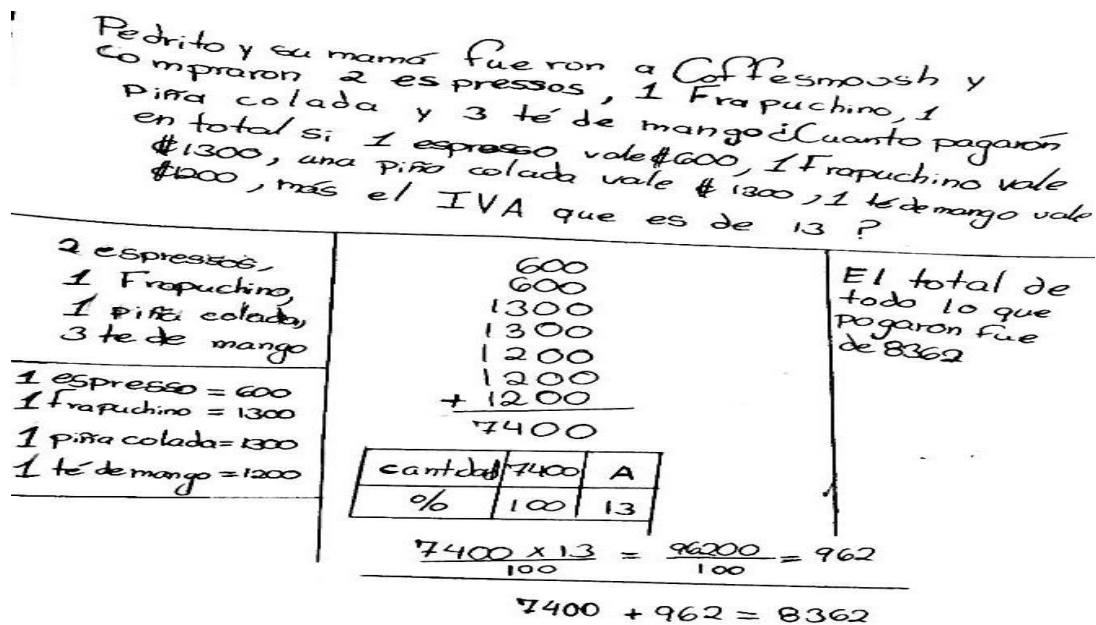 Pedrito y su mamá fueron a Coffesmoosh y
compraron 2 espressos, 1 Frapuchino, 1
piña colada y 3 té de mango ¿Cuanto pagarón
en total si 1 espresso vale ₡600, 1 Frapuchino vale
₡1300, una piña colada vale ₡1300, 1 té de mango vale
₡1200, más el IVA que es de 13 ?
2 espressos,
1 Frapuchino,
1 piña colada,
3 te de mango
1 espresso = 600
1 frapuchino = 1300
1 piña colada = 1300
1 té de mango = 1200
600
600
1300
1300
1200
1200
+ 1200
7400
cantidad 7400 A
% 100 13
7400 x 13 = 96200 = 962
100 100
7400 + 962 = 8362
El total de
todo lo que
pagaron fue
de 8362